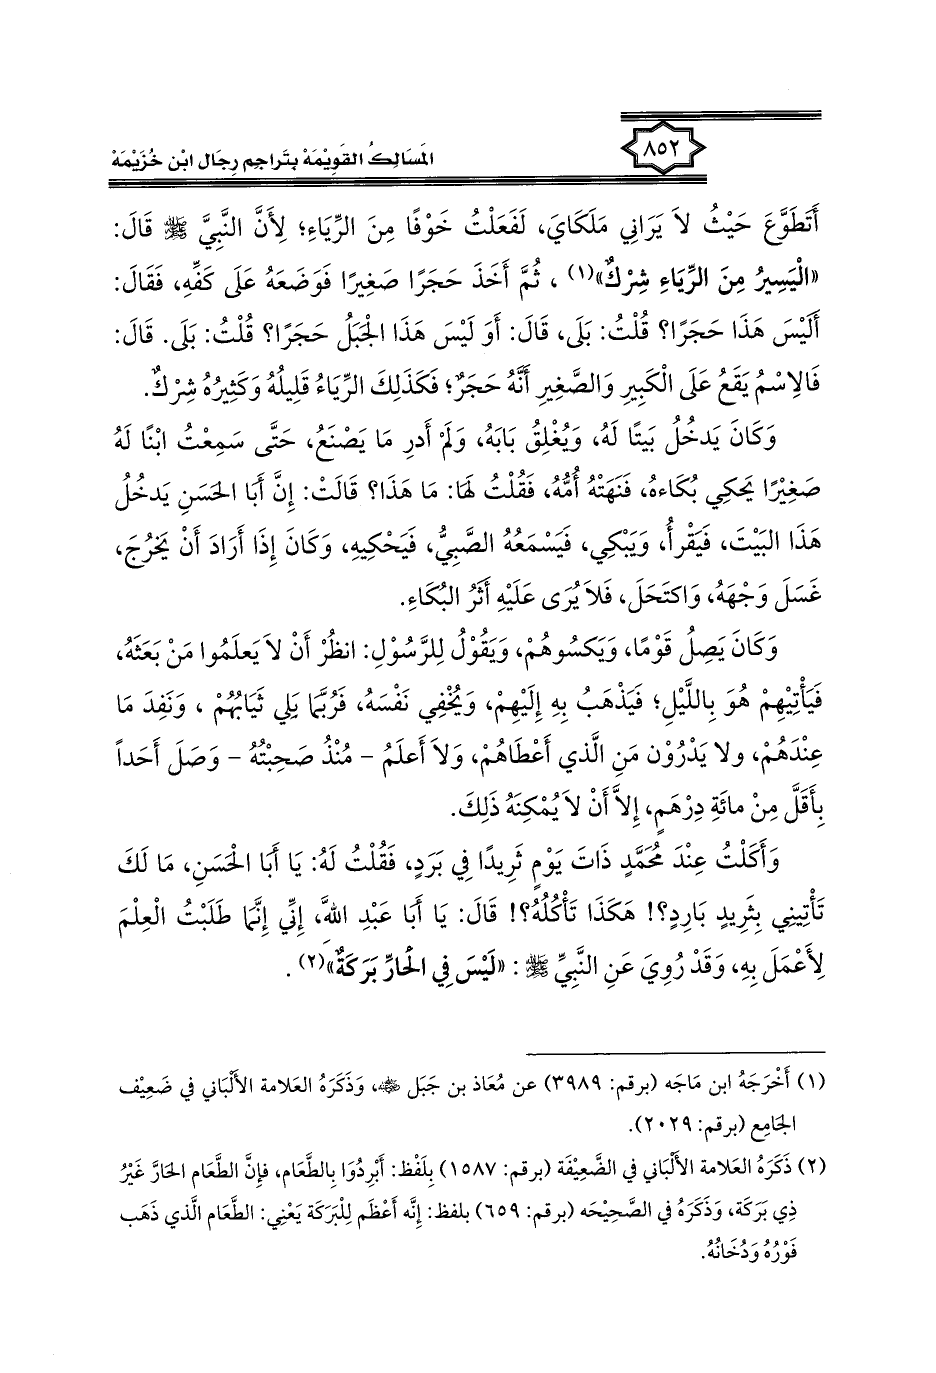 المَسَالِكُ القَوِيْمَهْ بِتَراجِم رِجَال ابْن خُزَيْمَهْ
٨٥٢
أَتَطَوَّعَ حَيْثُ لاَ يَرَانِي مَلَكَايَ، لَفَعَلْتُ خَوْفًا مِنَ الرِّيَاءِ؛ لِأَنَّ النَّبِيَّ ﷺ قَالَ:
«الْيَسِيرُ مِنَ الرِّيَاءِ شِرْكٌ»(١) ، ثُمَّ أَخَذَ حَجَرًا صَغِيرًا فَوَضَعَهُ عَلَى كَفِّهِ، فَقَالَ:
أَلَيْسَ هَذَا حَجَرًا؟ قُلْتُ: بَلَى، قَالَ: أَوَ لَيْسَ هَذَا الْجَبَلُ حَجَرًا؟ قُلْتُ: بَلَى. قَالَ:
فَالِاسْمُ يَقَعُ عَلَى الْكَبِيرِ وَالصَّغِيرِ أَنَّهُ حَجَرٌ؛ فَكَذَلِكَ الرِّيَاءُ قَلِيلُهُ وَكَثِيرُهُ شِرْكٌ.
وَكَانَ يَدخُلُ بَيتًا لَهُ، وَيُغْلِقُ بَابَهُ، وَلَمْ أَدرِ مَا يَصْنَعُ، حَتَّى سَمِعْتُ ابْنًا لَهُ
صَغِيْرًا يَحكِي بُكَاءهُ، فَنَهَتْهُ أُمُّهُ، فَقُلْتُ لَهَا: مَا هَذَا؟ قَالَتْ: إِنَّ أَبَا الحَسَنِ يَدخُلُ
هَذَا البَيْتَ، فَيَقْرأُ، وَيَبْكِي، فَيَسْمَعُهُ الصَّبِيُّ، فَيَحْكِيهِ، وَكَانَ إِذَا أَرَادَ أَنْ يَخرُجَ،
غَسَلَ وَجْهَهُ، وَاكتَحَلَ، فَلاَ يُرَى عَلَيْهِ أَثَرُ البُكَاءِ.
وَكَانَ يَصِلُ قَوْمًا، وَيَكسُوهُمْ، وَيَقُوْلُ لِلرَّسُوْلِ: انظُرْ أَنْ لاَ يَعلَمُوا مَنْ بَعَثَهُ،
فَيَأْتِيْهِمْ هُوَ بِاللَّيْلِ؛ فَيَذْهَبُ بِهِ إِلَيْهِمْ، وَيُخْفِي نَفْسَهُ، فَرُبَّمَا يَلِي ثَيَابُهُمْ ، وَنَفِدَ مَا
عِنْدَهُمْ، ولا يَدْرُوْن مَنِ الَّذي أَعْطَاهُمْ، وَلاَ أَعلَمُ – مُنْذُ صَحِبْتُهُ – وَصَلَ أَحَداً
بِأَقَلَّ مِنْ مائَةِ دِرْهَمٍ، إِلاَّ أَنْ لاَ يُمْكِنَهُ ذَلِكَ.
وَأَكَلْتُ عِنْدَ مُحَمَّدٍ ذَاتَ يَوْمٍ ثَرِيدًا فِي بَرَدٍ، فَقُلْتُ لَهُ: يَا أَبَا الْحَسَنِ، مَا لَكَ
تَأْتِينِي بِثَرِيدٍ بَارِدٍ؟! هَكَذَا تَأْكُلُهُ؟! قَالَ: يَا أَبَا عَبْدِ اللهِ، إِنِّي إِنَّمَا طَلَبْتُ الْعِلْمَ
لِأَعْمَلَ بِهِ، وَقَدْ رُوِيَ عَنِ النَّبِيِّ ﷺ : «لَيْسَ فِي الْحَارِّ بَرَكَةٌ»(٢) .
(١) أَخْرَجَهُ ابن مَاجَه (برقم: ٣٩٨٩) عن مُعَاذ بن جَبَل ﷺ، وَذَكَرَهُ العَلامة الأَلْبَاني في ضَعِيْف
الجَامِع (برقم: ٢٠٢٩).
(٢) ذَكَرَهُ العَلامة الأَلْبَاني في الضَّعِيْفَة (برقم: ١٥٨٧) بِلَفْظ: أَبْرِدُوَا بِالطَّعَام، فَإِنَّ الطَّعَام الحَارَّ غَيْرُ
ذِي بَرَكَة، وَذَكَرَهُ في الصَّحِيْحَه (برقم: ٦٥٩) بلفظ: إِنَّه أَعْظَم لِلْبَرَكَة يَعْنِي: الطَّعَام الَّذي ذَهَب
فَوْرُهُ وَدُخَانُهُ.